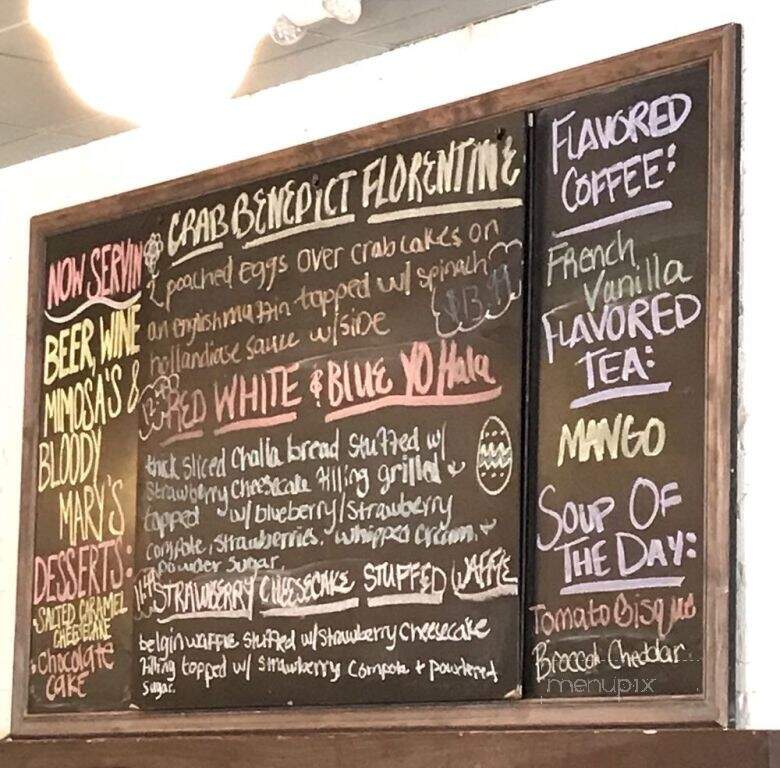 NOW SERVIN
BEER, WINE
MIMOSA'S &
BLOODY
MARY'S
DESSERTS:
SALTED CARAMEL
CHEESECAKE
• Chocolate
CAKE
CRAB BENEDICT FLORENTINE
2 poached eggs over crab cakes on
an english muffin topped w/ spinach
hollandiase sauce w/side
RED WHITE & BLUE YO Hala
thick sliced Challa bread stuffed w/
Strawberry Cheesecake filling grilled +
topped w/ blueberry/strawberry
compote, strawberries, whipped cream, +
powder sugar.
STRAWBERRY CHEESECAKE STUFFED WAFFLE
belgin waffle stuffed w/strawberry cheesecake
filling topped w/ strawberry compote + powdered
sugar.
FLAVORED
COFFEE:
French
Vanilla
FLAVORED
TEA:
MANGO
SOUP OF
THE DAY:
Tomato Bisque
Broccoli Cheddar
menupix